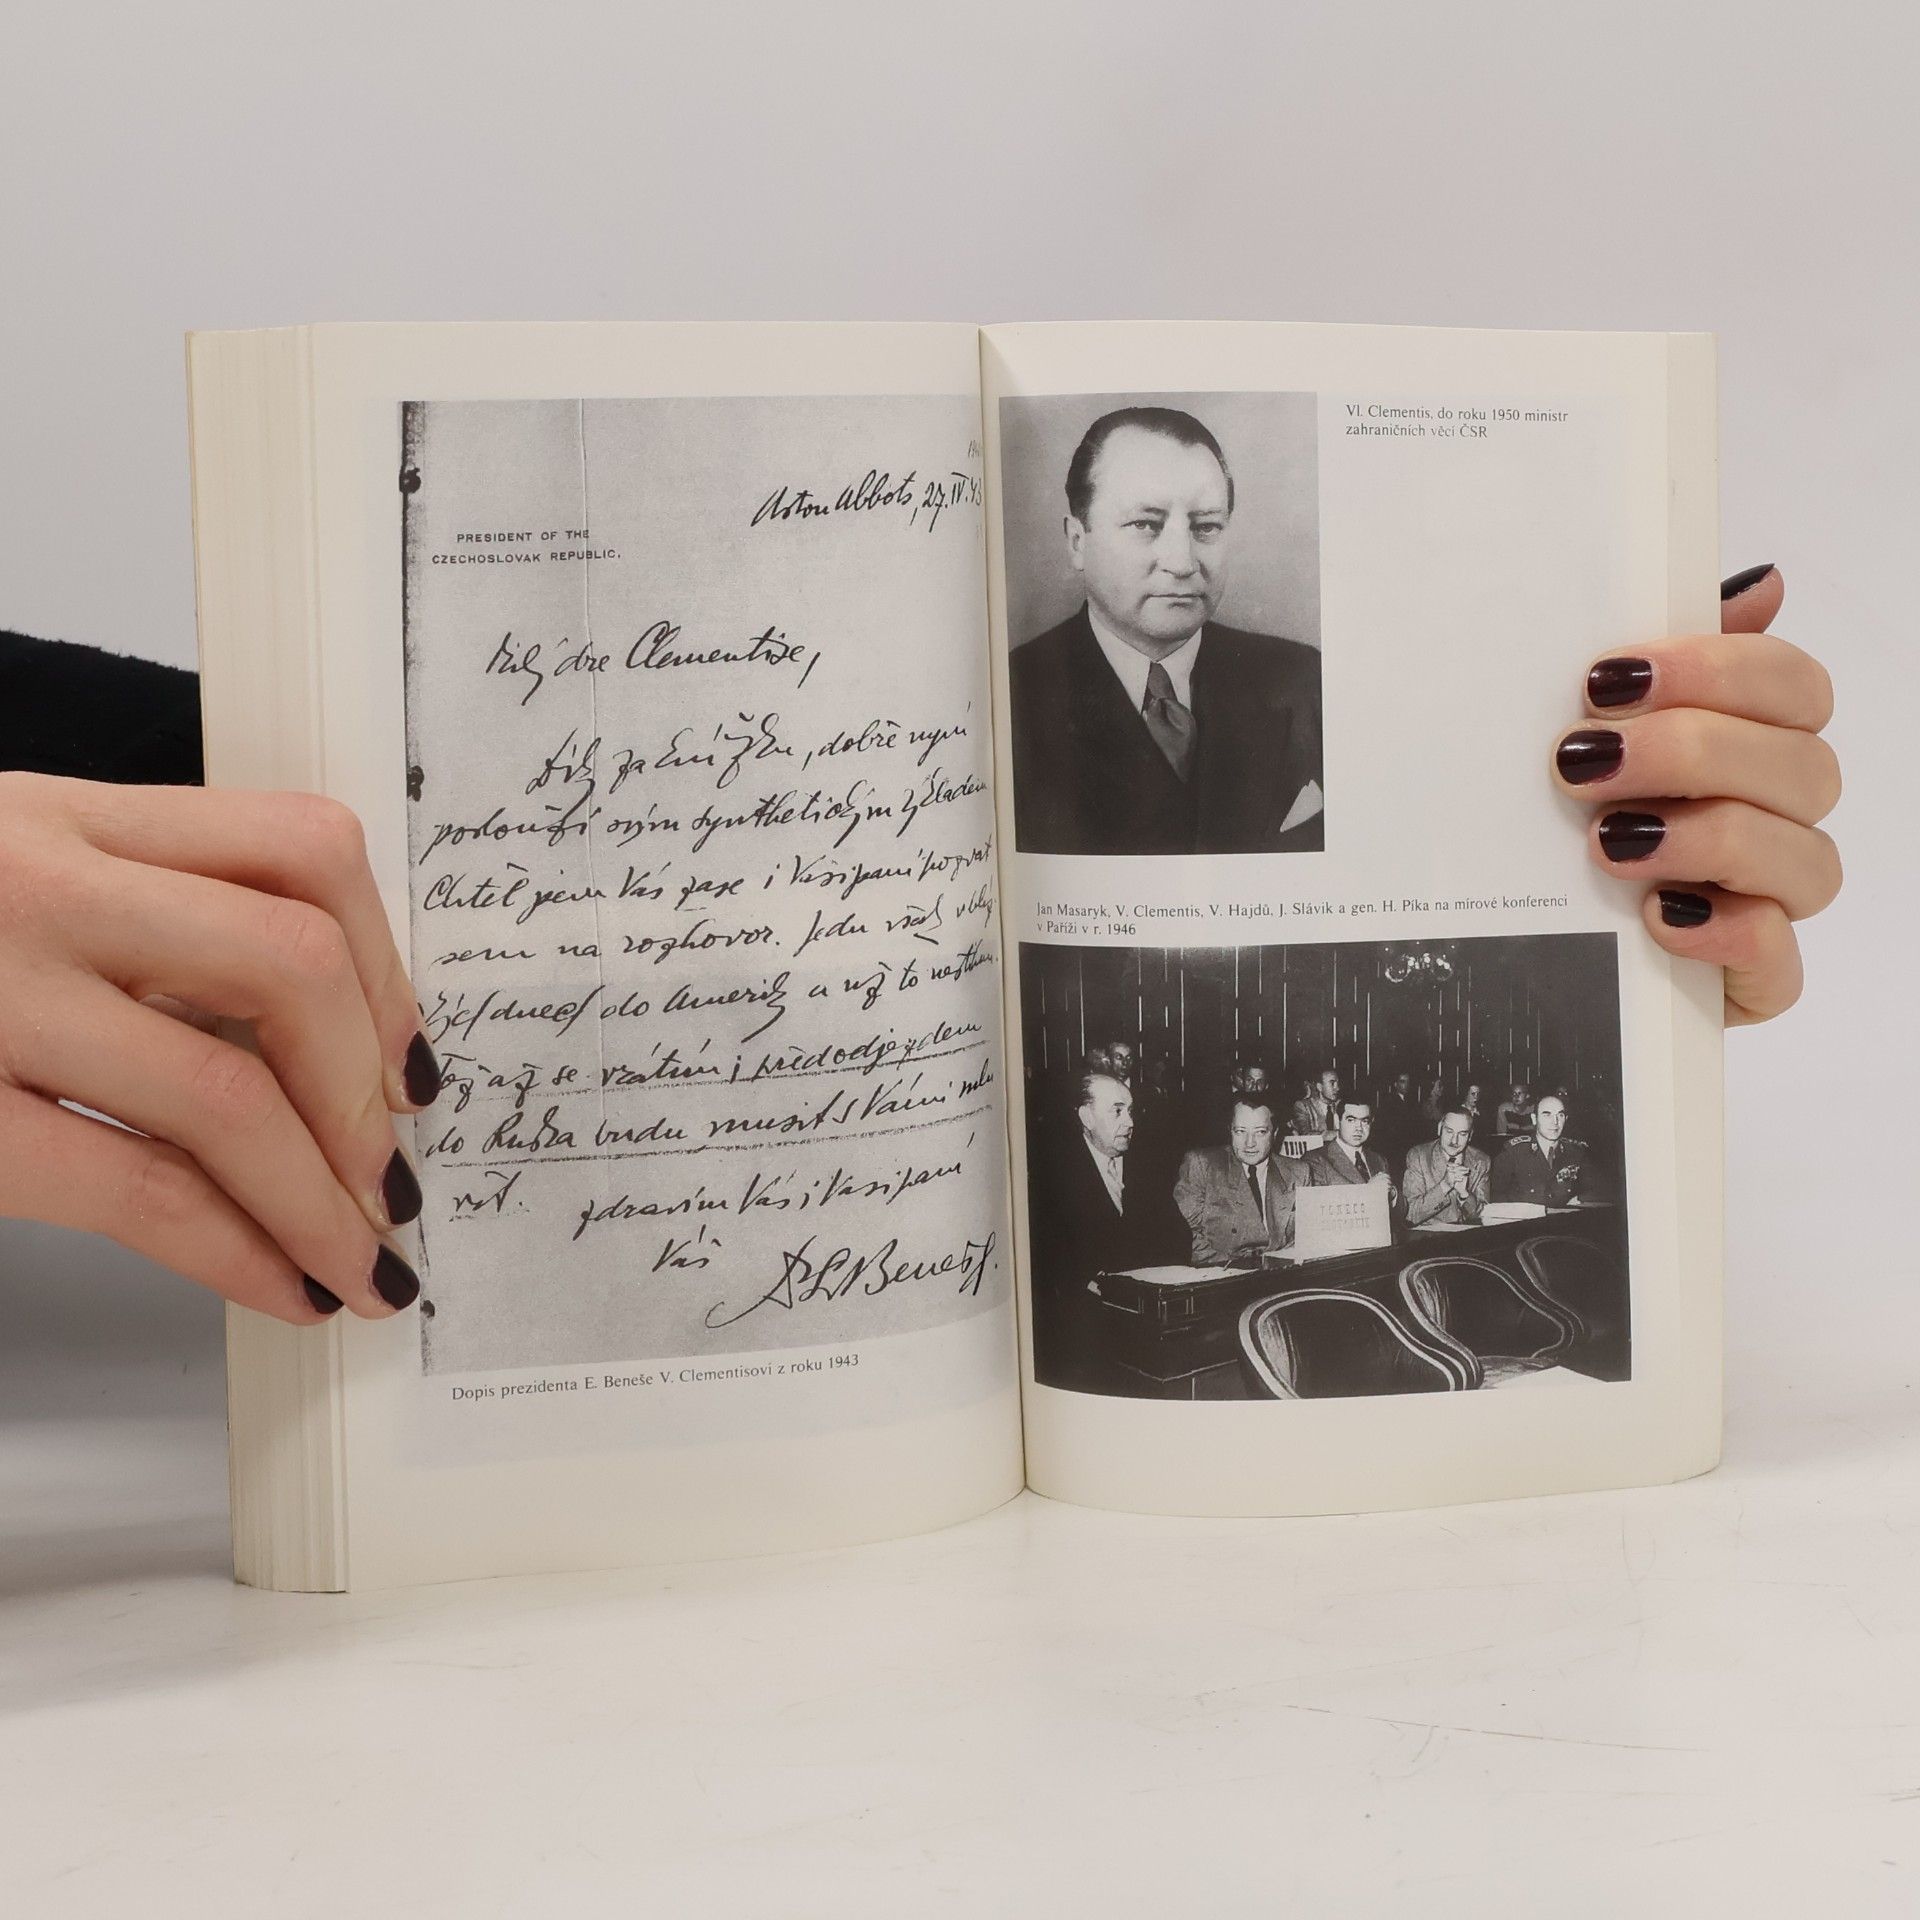 Aston Abbots, 27.IV.43
PRESIDENT OF THE
CZECHOSLOVAK REPUBLIC.
Milý dre Clementise,
Dík za knížku, dobře nyní
poslouží svým synthetickým
Chtěl jsem Vás zase i Vaši paní pozvat
sem na rozhovor. Jedu však v
dnech do Ameriky a už to
Tož až se vrátím i před odjezdem
do Ruska budu musit s Vámi
vit.
zdravím Vás i Vaši paní
Váš
Dr E Beneš
Dopis prezidenta E. Beneše V. Clementisovi z roku 1943
Vl. Clementis, do roku 1950 ministr
zahraničních věcí ČSR
Jan Masaryk, V. Clementis, V. Hajdů, J. Slávik a gen. H. Píka na mírové konferenci
v Paříži v r. 1946